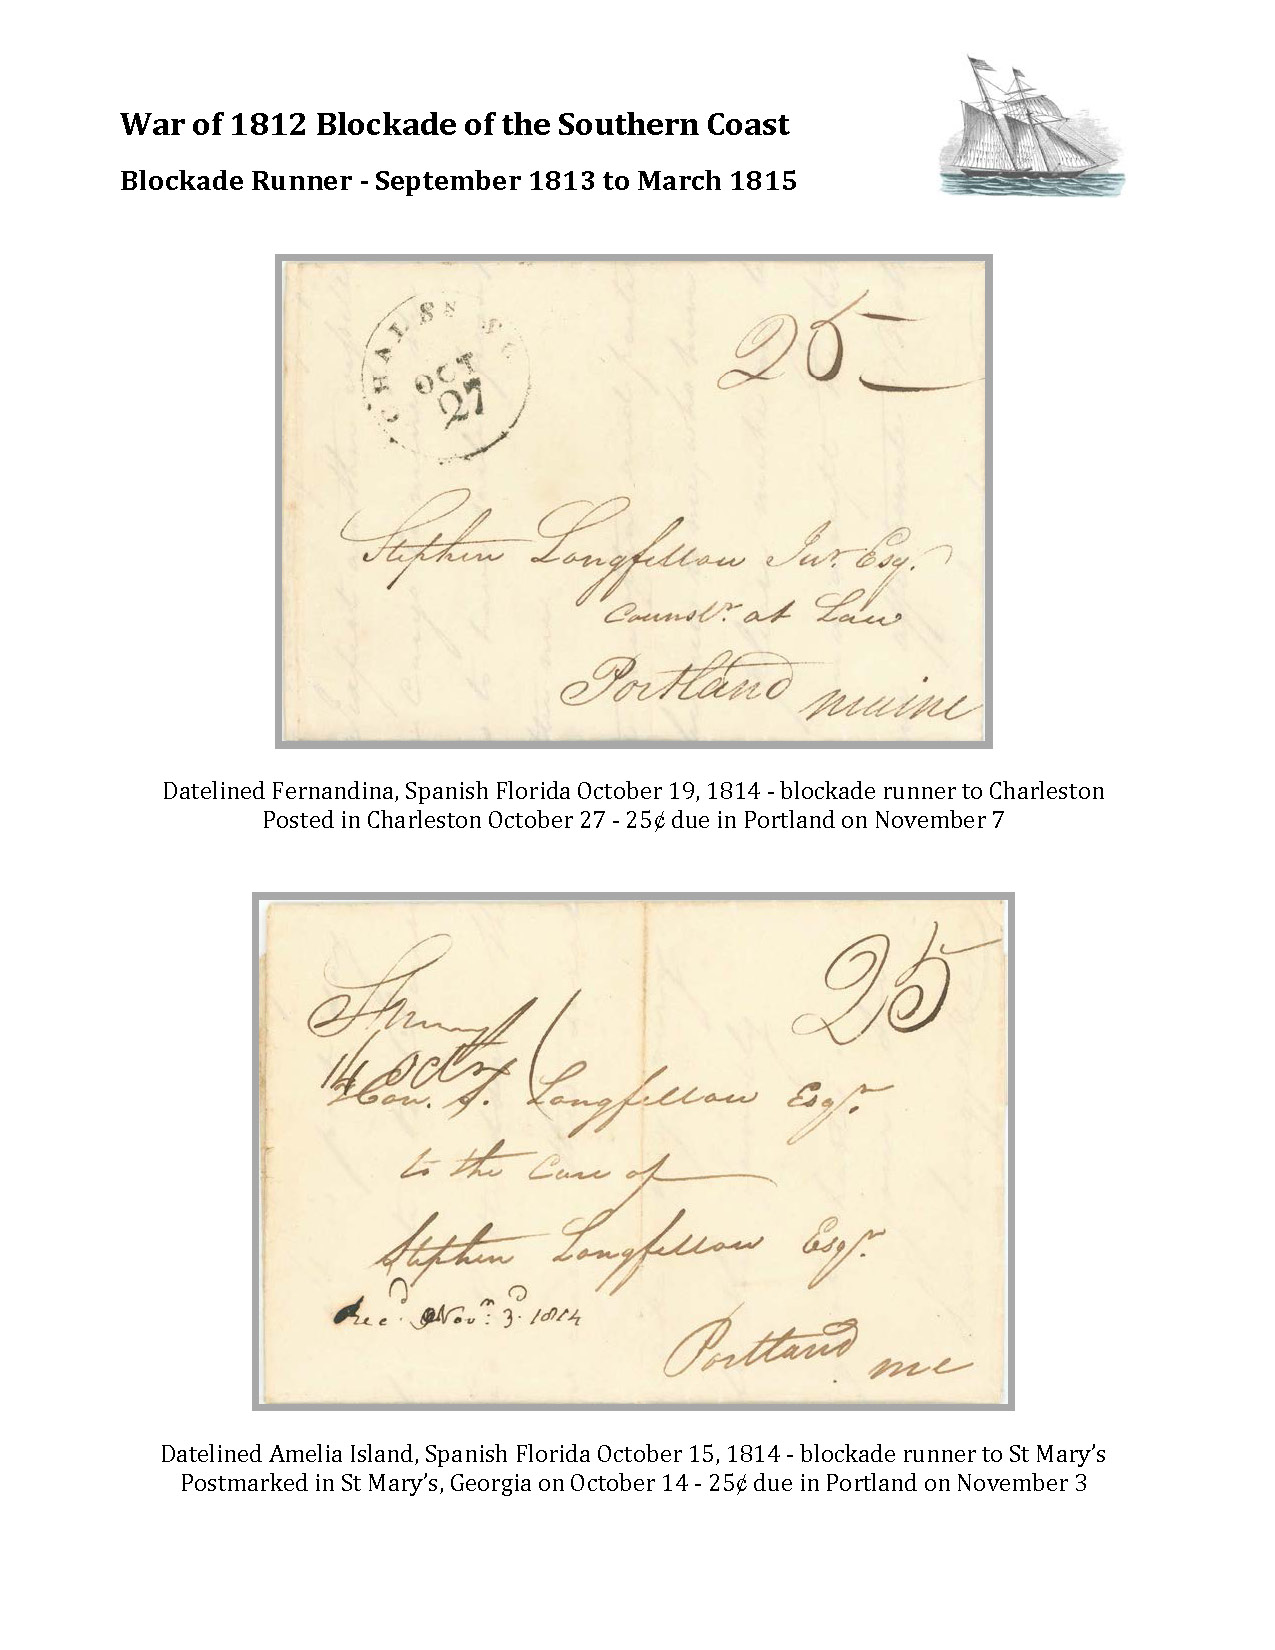 War of 1812 Blockade of the Southern Coast
Blockade Runner - September 1813 to March 1815
OCT
27
25
Stephen Longfellow Junr. Esq.
Counslr. at Law
Portland maine
Datelined Fernandina, Spanish Florida October 19, 1814 - blockade runner to Charleston
Posted in Charleston October 27 - 25¢ due in Portland on November 7
25
14 Octr
Hon. S. Longfellow Esqr.
to the Care of
Stephen Longfellow Esqr.
Recd. Novm. 3d. 1814
Portland me
Datelined Amelia Island, Spanish Florida October 15, 1814 - blockade runner to St Mary’s
Postmarked in St Mary’s, Georgia on October 14 - 25¢ due in Portland on November 3